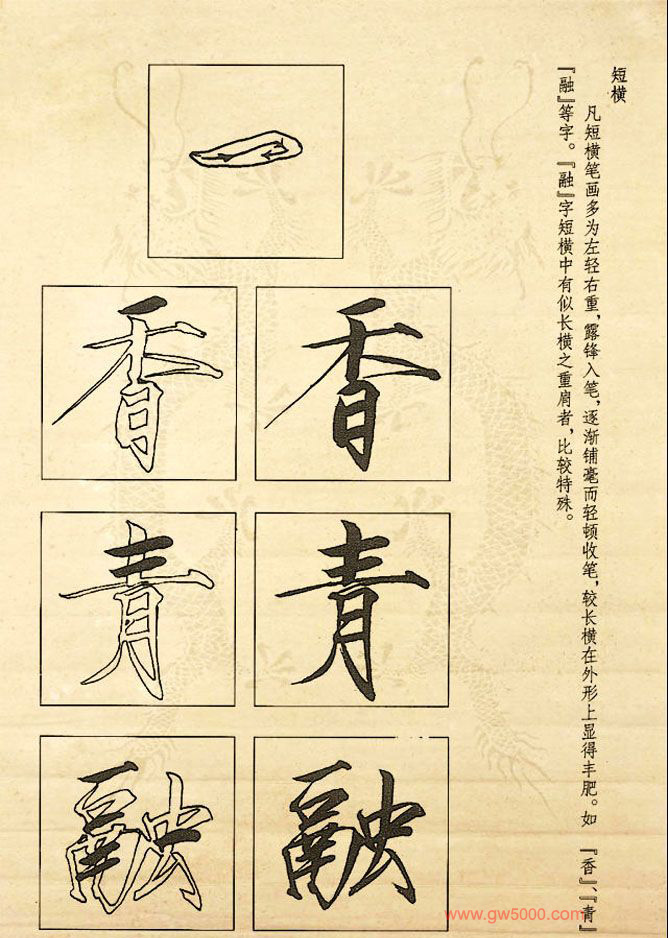 短横
凡短横笔画多为左轻右重，露锋入笔，逐渐铺毫而轻顿收笔，较长横在外形上显得丰肥。如『香』、『青』
『融』等字。『融』字短横中有似长横之重肩者，比较特殊。
一
香
香
青
青
融
融
www.gw5000.com